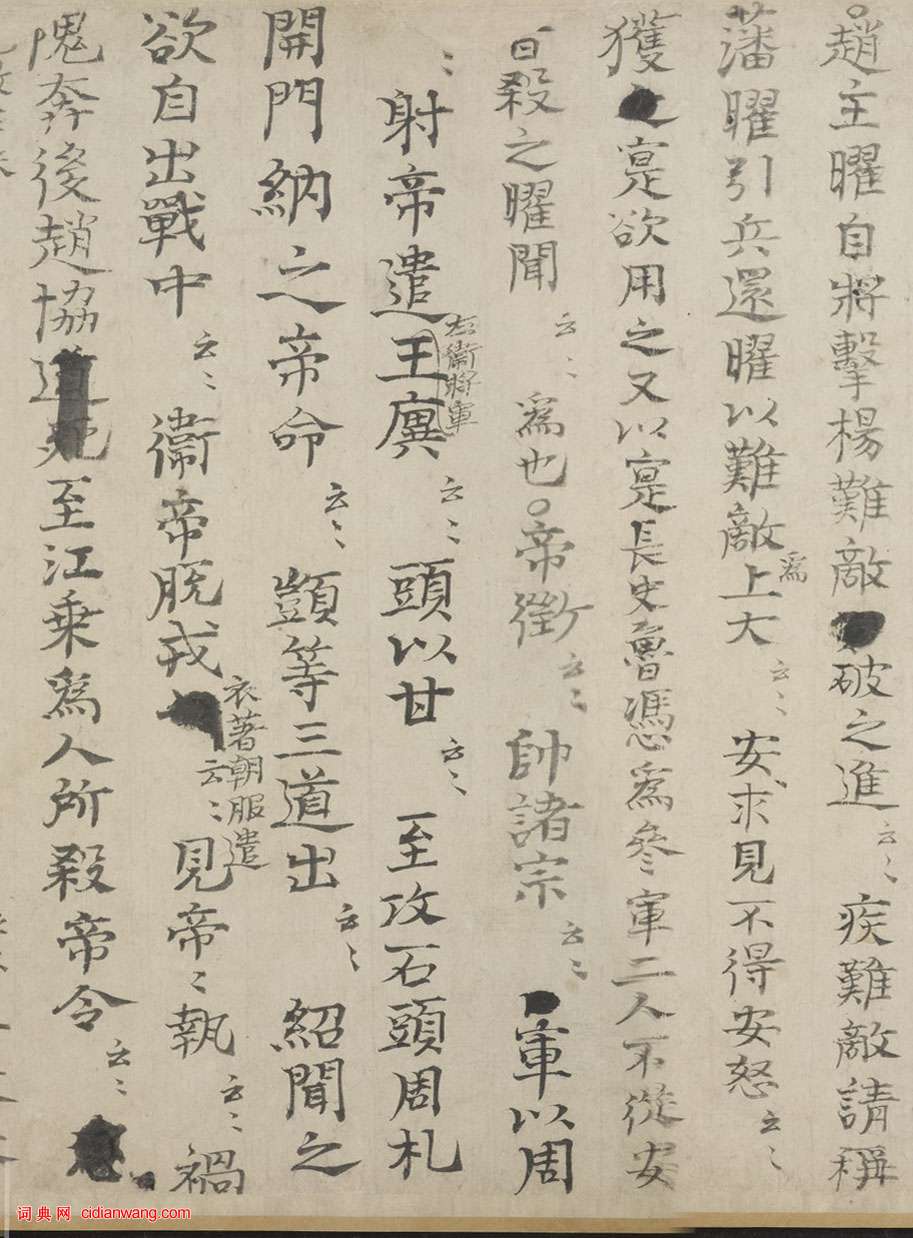 趙主曜自將擊楊難敵破之進云〻疾難敵請稱
藩曜引兵還曜以難敵爲上大云〻安求見不得安怒云〻
獲寔欲用之又以寔長史魯憑爲參軍二人不從安
曰殺之曜聞云〻爲也帝徵云〻帥諸宗云〻軍以周
〻射帝遣王廙右衛將軍云〻頭以甘云〻至攻石頭周札
開門納之帝命云〻顗等三道出云〻紹聞之
欲自出戰中云〻衛帝脫戎衣著朝服遣云〻見帝〻執云〻禍
隗奔後趙協至江乘爲人所殺帝令云〻
词典网 cidianwang.com